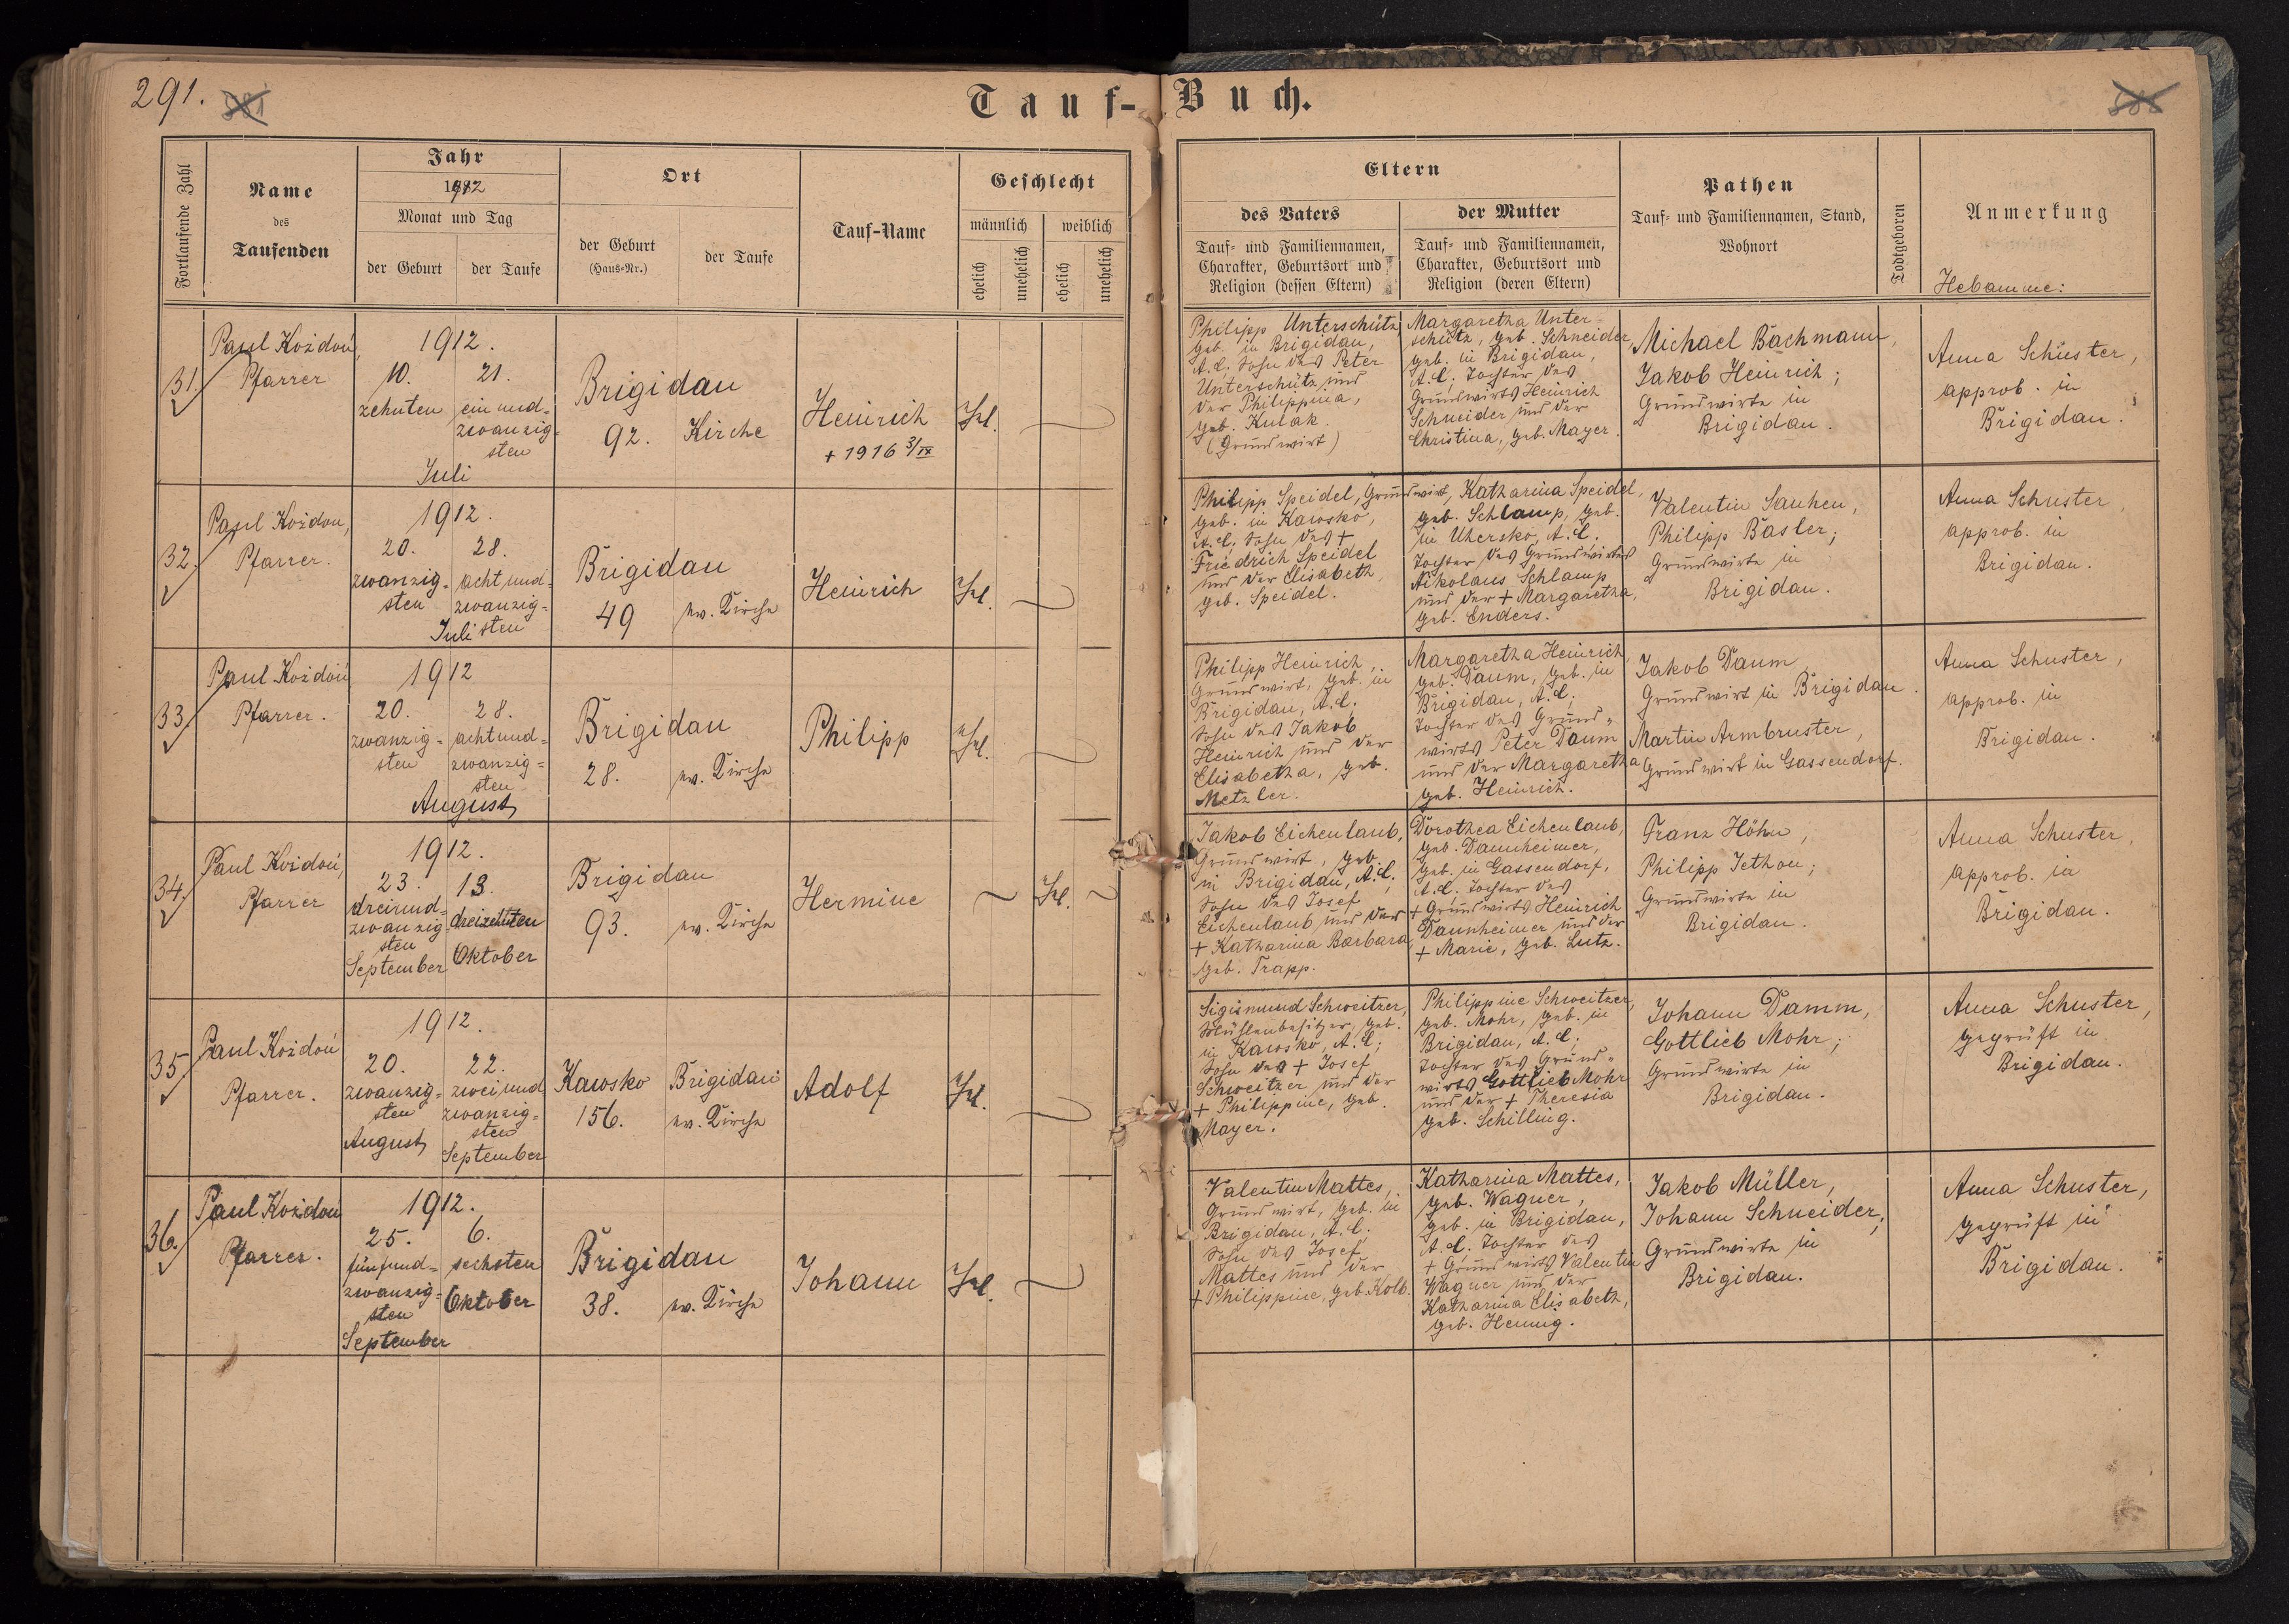 291.
Tauf-Buch.
Fortlaufende Zahl
Name
des
Taufenden
Jahr
1912
Monat und Tag
der Geburt
der Taufe
Ort
der Geburt
(Haus-Nr.)
der Taufe
Tauf-Name
Geschlecht
männlich
weiblich
ehelich
unehelich
ehelich
unehelich
Eltern
des Vaters
Tauf- und Familiennamen,
Charakter, Geburtsort und
Religion (dessen Eltern)
der Mutter
Tauf- und Familiennamen,
Charakter, Geburtsort und
Religion (deren Eltern)
Pathen
Tauf- und Familiennamen, Stand,
Wohnort
Todtgeboren
Anmerkung
Hebamme:
31.
Paul Kożdoń,
Pfarrer
1912.
10.
zehnten
21.
einund=
zwanzig=
sten
Juli
Brigidau
92.
Kirche
Heinrich
+ 1916 3/IX
Ehl.
Philipp Unterschütz
geb. in Brigidau,
A.C; Sohn des Peter
Unterschütz und
der Philippina,
geb. Kulak.
(Grundwirt)
Margaretha Unter-
schütz, geb. Schneider
geb. in Brigidau,
A.C; Tochter des
Grundwirts Heinrich
Schneider und der
Christina, geb. Mayer.
Michael Bachmann,
Jakob Heinrich;
Grundwirte in
Brigidau.
Anna Schuster,
approb. in
Brigidau.
32.
Paul Kożdoń,
Pfarrer.
1912.
20.
zwanzig=
sten
28.
achtund=
zwanzig=
sten
Juli
Brigidau
49
ev. Kirche
Heinrich
Ehl.
Philipp Speidel, Grundwirt,
geb. in Kawsko,
A.C; Sohn des +
Friedrich Speidel
und der Elisabeth,
geb. Speidel.
Katharina Speidel,
geb. Schlamp, geb.
in Uhersko, A.C.
Tochter des Grundwirtes
Nikolaus Schlamp
und der + Margaretha,
geb. Enders.
Valentin Sauhen,
Philipp Basler;
Grundwirte in
Brigidau.
Anna Schuster,
approb. in
Brigidau.
33.
Paul Kożdoń
Pfarrer.
1912
20.
zwanzig=
sten
28.
achtund=
zwanzig=
sten
August
Brigidau
28.
ev. Kirche
Philipp
Ehl.
Philipp Heinrich,
Grundwirt, geb. in
Brigidau, A.C.
Sohn des Jakob
Heinrich und der
Elisabetha, geb.
Metzler.
Margaretha Heinrich,
geb. Daum, geb. in
Brigidau, A.C;
Tochter des Grund=
wirts Peter Daum
und der Margaretha
geb. Heinrich.
Jakob Daum
Grundwirt in Brigidau.
Martin Armbruster,
Grundwirt in Gassendorf.
Anna Schuster,
approb. in
Brigidau.
34.
Paul Kożdoń,
Pfarrer
1912.
23.
dreiund=
zwanzig=
sten
September
13.
dreizehnten
Oktober
Brigidau
93.
ev. Kirche
Hermine
Ehl.
Jakob Eichenlaub,
Grundwirt, geb.
in Brigidau, A.C;
Sohn des Josef
Eichenlaub und der
+ Katharina Barbara
geb. Trapp.
Dorothea Eichenlaub,
geb. Dannheimer,
geb. in Gassendorf,
A.C. Tochter des
+ Grundwirts Heinrich
Dannheimer und der
+ Marie, geb. Lutz.
Franz Höhn,
Philipp Jethon;
Grundwirte in
Brigidau.
Anna Schuster,
approb. in
Brigidau.
35.
Paul Kożdoń
Pfarrer.
1912.
20.
zwanzig=
sten
August
22.
zweiund
zwanzig=
sten
September
Kawsko
156.
Brigidau
ev. Kirche
Adolf
Ehl.
Sigismund Schweitzer,
Mühlenbesitzer, geb.
in Kawsko, A.C;
Sohn des + Josef
Schweitzer und der
+ Philippine, geb.
Mayer.
Philippine Schweitzer,
geb. Mohr, geb. in
Brigidau, A.C;
Tochter des Grund=
wirts Gottlieb Mohr
und der + Theresia
geb. Schilling.
Johann Damm,
Gottlieb Mohr;
Grundwirte in
Brigidau.
Anna Schuster,
geprüft in
Brigidau.
36.
Paul Kożdoń
Pfarrer.
1912.
25.
fünfund=
zwanzig=
sten
September
6.
sechsten
Oktober
Brigidau
38.
ev. Kirche
Johann
Ehl.
Valentin Mattes,
Grundwirt, geb. in
Brigidau, A.C.
Sohn des Josef
Mattes und der
+ Philippine, geb. Kolb.
Katharina Mattes,
geb. Wagner,
geb. in Brigidau,
A.C. Tochter des
+ Grundwirts Valentin
Wagner und der
Katharina Elisabeth,
geb. Hennig.
Jakob Müller,
Johann Schneider;
Grundwirte in
Brigidau.
Anna Schuster,
geprüft in
Brigidau.